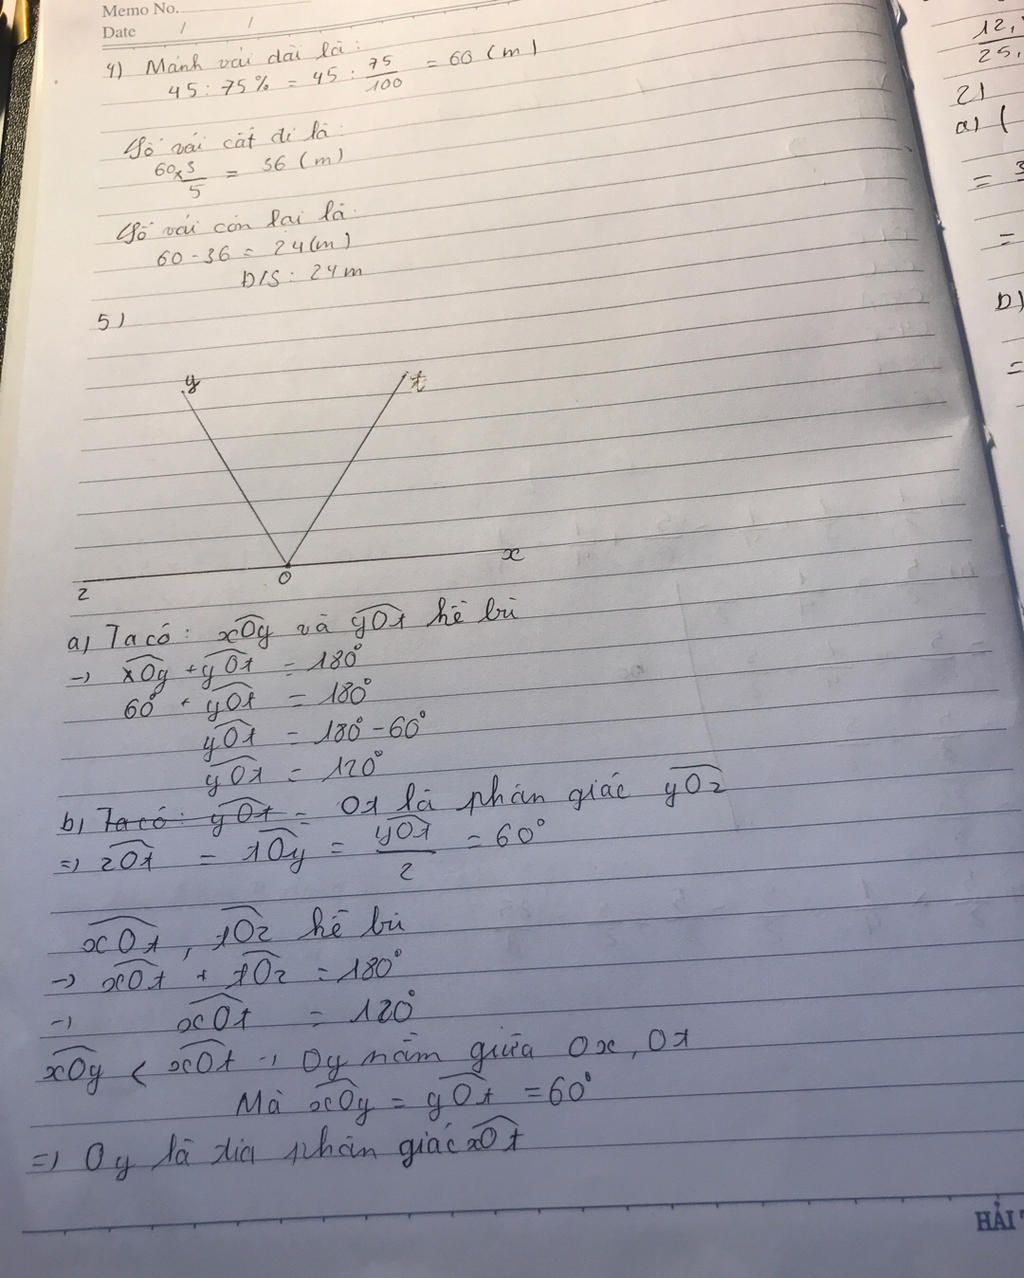 Memo No.
Date / /
4) Mảnh vải dài là:
45 : 75% = 45 : 75/100 = 60 (m)
Số vải cắt đi là:
60 x 3/5 = 36 (m)
Số vải còn lại là:
60 - 36 = 24 (m)
Đ/S: 24m
5)
y t
O x
z
a) Ta có: xOy và yOt kề bù
→ xOy + yOt = 180°
60° + yOt = 180°
yOt = 180° - 60°
yOt = 120°
b) Ta có: yOt = Ot là phân giác yOz
=> zOt = tOy = yOt/2 = 60°
xOt, tOz kề bù
→ xOt + tOz = 180°
→ xOt = 120°
xOy < xOt → Oy nằm giữa Ox, Ot
Mà xOy = yOt = 60°
=> Oy là tia phân giác xOt
HẢI
12,
25,
2)
a) (
=
=
b)
=